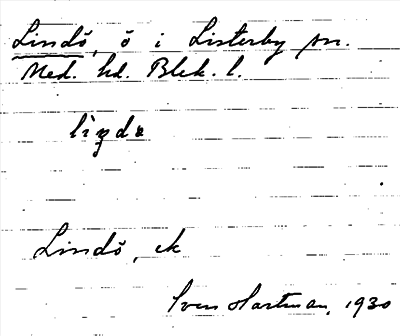 Lindö, ö i Listerby sn.
Med. hd. Blek. l.
Lindö, ek
Sven Hartman, 1930